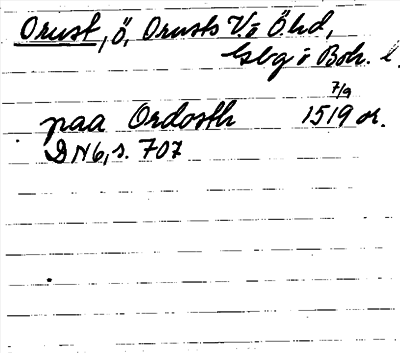 Orust, ö, Orusts V. o Ö. hd,
Gbg o Boh. l.
7/9
paa Ordosth 1519 or.
DN 6, s. 707